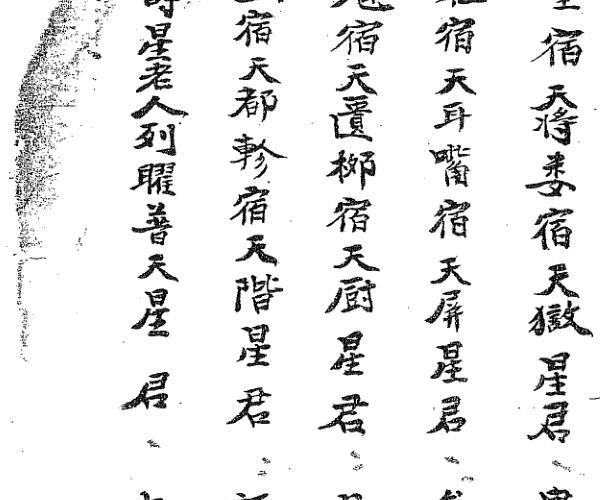 宿天將婁宿天獄星君
宿天耳嘴宿天屏星君
宿天匱柳宿天厨星君
宿天都軫宿天階星君
星老人列曜普天星君